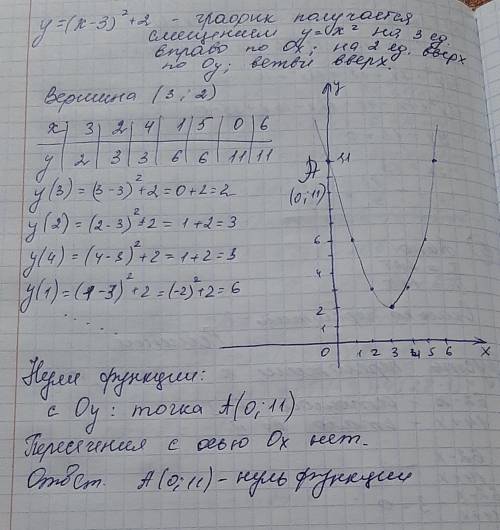 y=(x-3)²+2 - график получается
смещением y=x² на 3 ед.
вправо по Ox; на 2 ед. вверх
по Oy; ветви вверх.
Вершина (3; 2)
x | 3 | 2 | 4 | 1 | 5 | 0 | 6
y | 2 | 3 | 3 | 6 | 6 | 11 | 11
y(3) = (3-3)²+2 = 0+2 = 2
y(2) = (2-3)²+2 = 1+2 = 3
y(4) = (4-3)²+2 = 1+2 = 3
y(1) = (1-3)²+2 = (-2)²+2 = 6
. . . . . .
y
A 11
(0; 11)
6
2
1
0 1 2 3 4 5 6 x
Нули функции:
с Oy: точка A(0; 11)
Пересечения с осью Ox нет.
Ответ. A(0; 11) - нуль функции